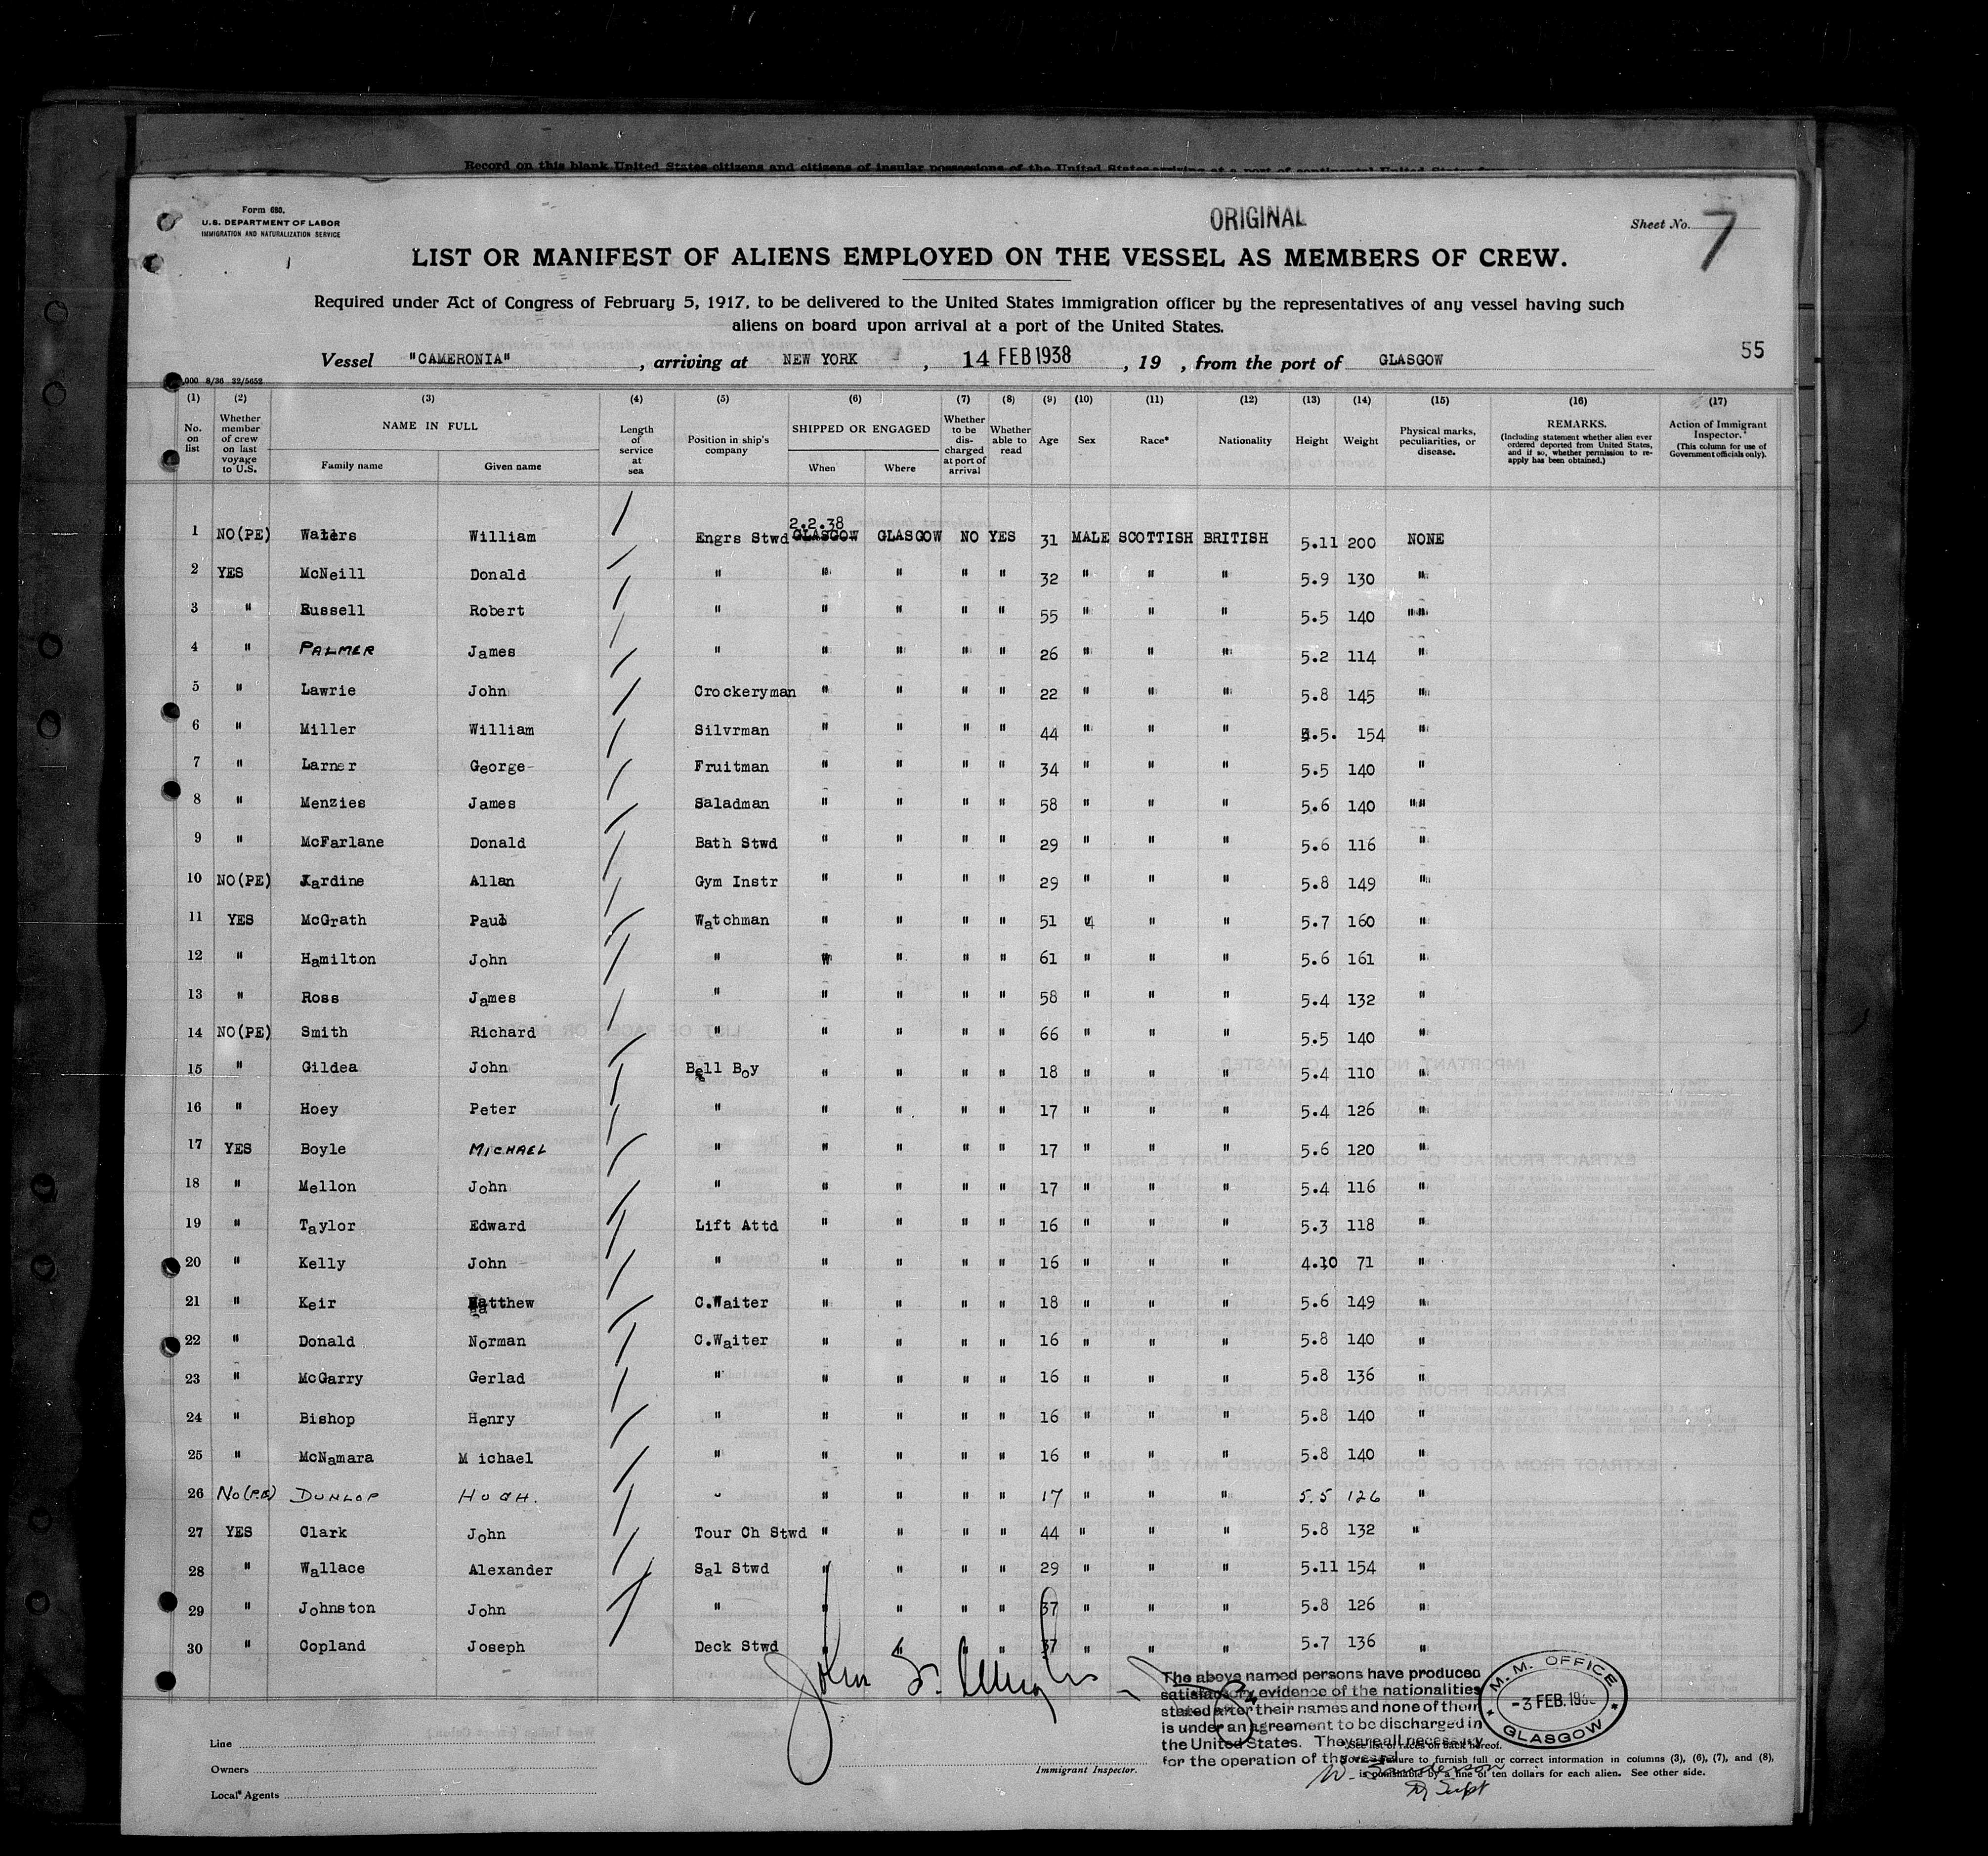 Record on this blank United States citizens and citizens of insular possessions of the United States arriving at a port of continental United States
Form 680.
U.S. DEPARTMENT OF LABOR
IMMIGRATION AND NATURALIZATION SERVICE
ORIGINAL
Sheet No. 7
LIST OR MANIFEST OF ALIENS EMPLOYED ON THE VESSEL AS MEMBERS OF CREW.
Required under Act of Congress of February 5, 1917, to be delivered to the United States immigration officer by the representatives of any vessel having such
aliens on board upon arrival at a port of the United States.
Vessel "CAMERONIA", arriving at NEW YORK, 14 FEB 1938, 19 , from the port of GLASGOW
55
,000 8/36 32/5652
(1) (2) (3) (4) (5) (6) (7) (8) (9) (10) (11) (12) (13) (14) (15) (16) (17)
No. on list
Whether member of crew on last voyage to U.S.
NAME IN FULL
Family name Given name
Length of service at sea
Position in ship's company
SHIPPED OR ENGAGED
When Where
Whether to be discharged at port of arrival
Whether able to read
Age Sex Race* Nationality Height Weight
Physical marks, peculiarities, or disease.
REMARKS.
(Including statement whether alien ever ordered deported from United States, and if so, whether permission to re-apply has been obtained.)
Action of Immigrant Inspector.
(This column for use of Government officials only).
2.2.38
1 NO(PE) Waters William Engrs Stwd GLASGOW GLASGOW NO YES 31 MALE SCOTTISH BRITISH 5.11 200 NONE
2 YES McNeill Donald " " " " " 32 " " " 5.9 130 "
3 " Russell Robert " " " " " 55 " " " 5.5 140 ""
4 " PALMER James " " " " " 26 " " " 5.2 114 "
5 " Lawrie John Crockeryman " " " " 22 " " " 5.8 145 "
6 " Miller William Silvrman " " " " 44 " " " 5.5. 154 "
7 " Larner George Fruitman " " " " 34 " " " 5.5 140 "
8 " Menzies James Saladman " " " " 58 " " " 5.6 140 ""
9 " McFarlane Donald Bath Stwd " " " " 29 " " " 5.6 116 "
10 NO(PE) Jardine Allan Gym Instr " " " " 29 " " " 5.8 149 "
11 YES McGrath Paul Watchman " " " " 51 " " " 5.7 160 "
12 " Hamilton John " " " " " 61 " " " 5.6 161 "
13 " Ross James " " " " " 58 " " " 5.4 132 "
14 NO(PE) Smith Richard " " " " " 66 " " " 5.5 140 "
15 " Gildea John Bell Boy " " " " 18 " " " 5.4 110 "
16 " Hoey Peter " " " " " 17 " " " 5.4 126 "
17 YES Boyle MICHAEL " " " " " 17 " " " 5.6 120 "
18 " Mellon John " " " " " 17 " " " 5.4 116 "
19 " Taylor Edward Lift Attd " " " " 16 " " " 5.3 118 "
20 " Kelly John " " " " " 16 " " " 4.10 71 "
21 " Keir Matthew C.Waiter " " " " 18 " " " 5.6 149 "
22 " Donald Norman C.Waiter " " " " 16 " " " 5.8 140 "
23 " McGarry Gerlad " " " " " 16 " " " 5.8 136 "
24 " Bishop Henry " " " " " 16 " " " 5.8 140 "
25 " McNamara Michael " " " " " 16 " " " 5.8 140 "
26 No(P.E) DUNLOP HUGH. " " " " " 17 " " " 5.5 126 "
27 YES Clark John Tour Ch Stwd " " " " 44 " " " 5.8 132 "
28 " Wallace Alexander Sal Stwd " " " " 29 " " " 5.11 154 "
29 " Johnston John " " " " " 37 " " " 5.8 126 "
30 " Copland Joseph Deck Stwd " " " " 37 " " " 5.7 136 "
John
The above named persons have produced
satisfactory evidence of the nationalities
stated after their names and none of them
is under an agreement to be discharged in
the United States. They are all necessary
for the operation of the vessel
M. M. OFFICE
-3 FEB. 193
GLASGOW
Line
Owners
Local Agents
Immigrant Inspector.
*See list of races on back hereof.
NOTE.—Failure to furnish full or correct information in columns (3), (6), (7), and (8),
is punishable by a fine of ten dollars for each alien. See other side.
W. Sanderson
Supt